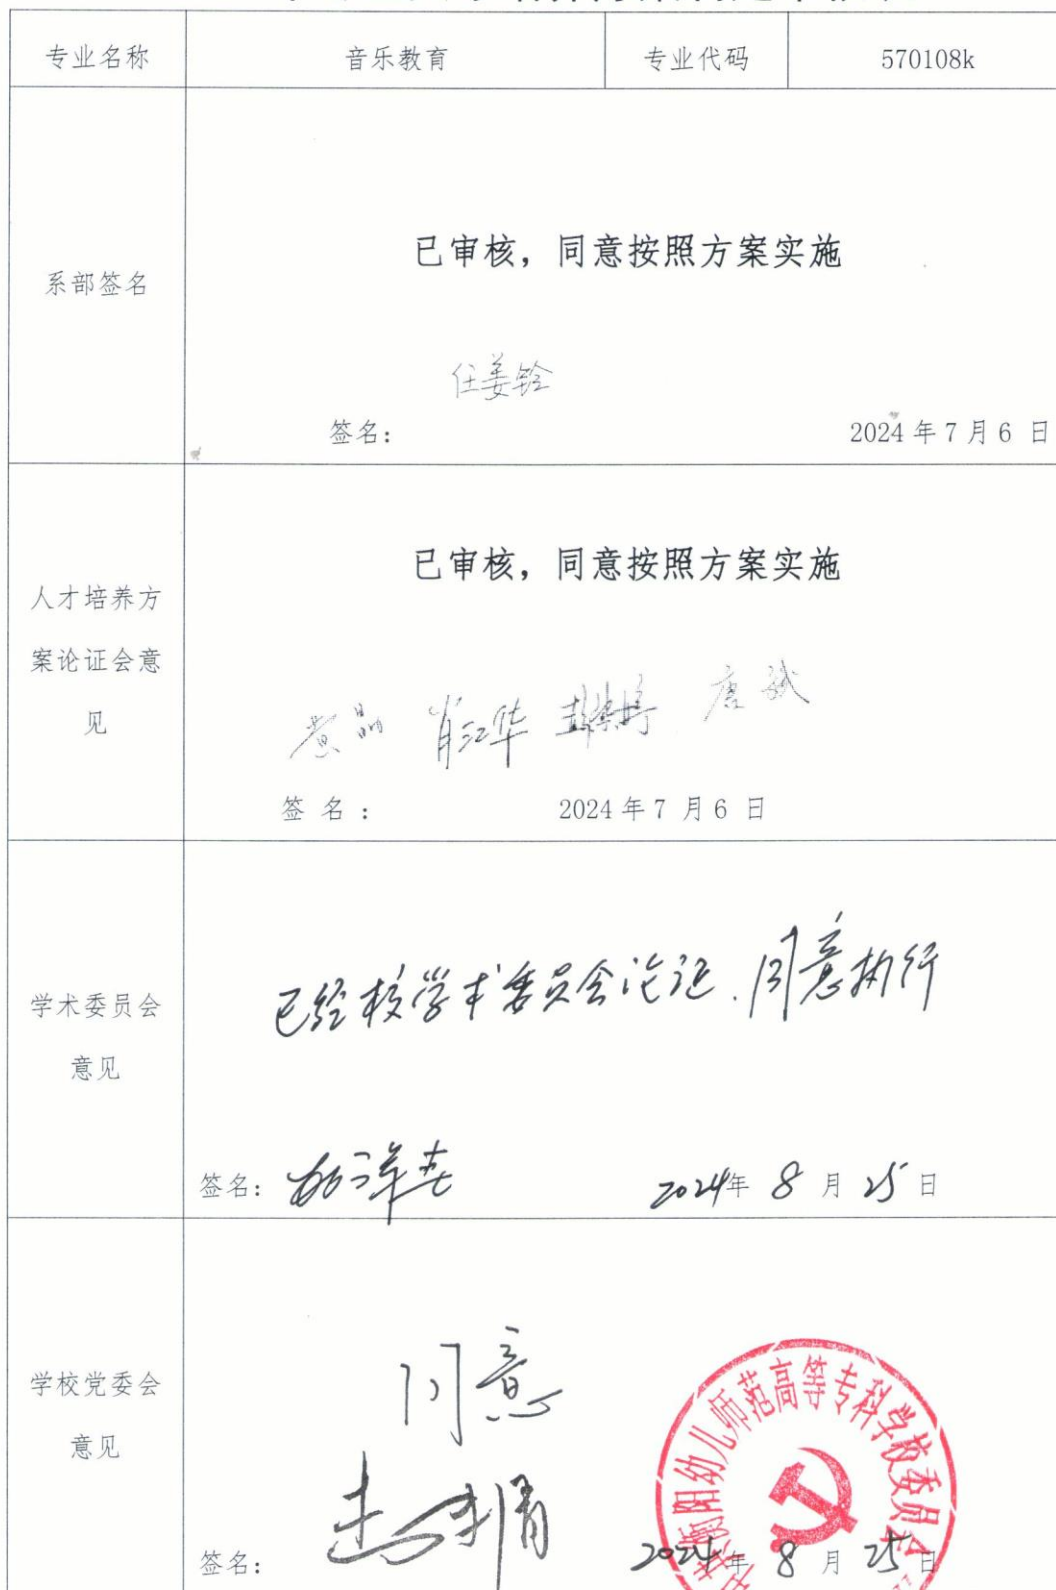 专业名称 音乐教育 专业代码 570108k
系部签名
已审核，同意按照方案实施
任姜铨
签名： 2024年7月6日
人才培养方
案论证会意
见
已审核，同意按照方案实施
黄晶 肖江华 唐斌
签名： 2024年7月6日
学术委员会
意见
已经校学术委员会论证.同意执行
签名： 2024年8月25日
学校党委会
意见
同意
衡阳幼儿师范高等专科学校委员会
签名： 2024年8月25日